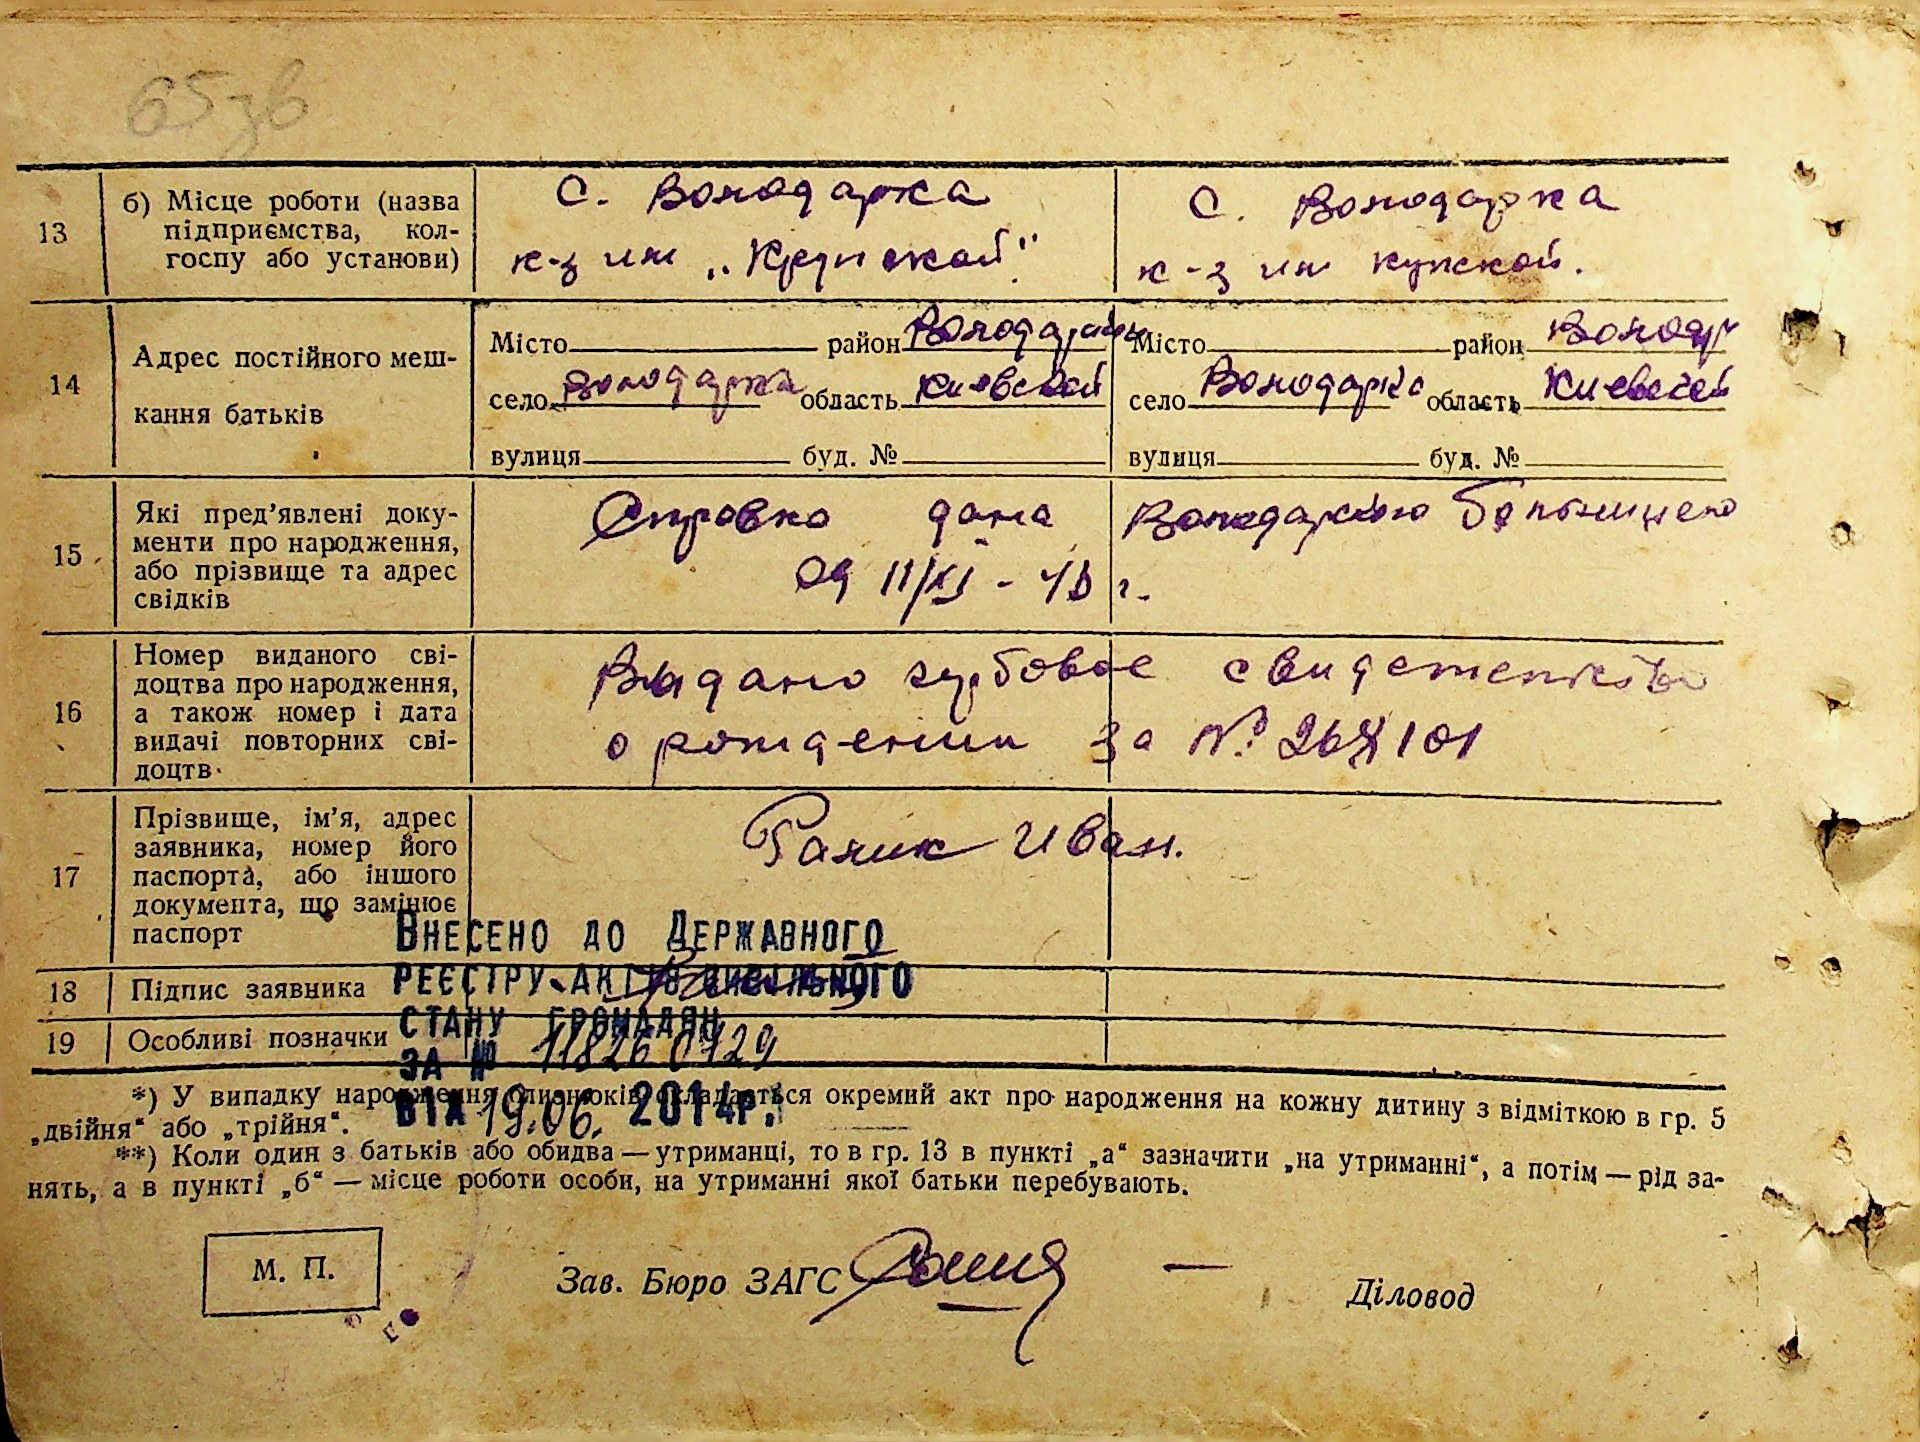 65зв
13 б) Місце роботи (назва підприємства, кол-госпу або установи)
С. Володарка
к-з им „Крупской"
С. Володарка
к-з им купской.
14 Адрес постійного меш-кання батьків
Місто район
село Володарка область Киевской
вулиця буд. №
Місто район Володар
село Володарка область Киевской
вулиця буд. №
15 Які пред'явлені доку-менти про народження, або прізвище та адрес свідків
Справка дана Володарською больницею
од 11/XI-4 г.
16 Номер виданого сві-доцтва про народження, а також номер і дата видачі повторних сві-доцтв.
Выдано гербовое свидетельство
о рождении за №
17 Прізвище, ім'я, адрес заявника, номер його паспорта, або іншого документа, що замінює паспорт
Иван.
18 Підпис заявника
19 Особливі позначки
Внесено до Державного
реєстру актів цивільного
стану громадян
за № 11826 0429
від 19.06. 2014р.
*) У випадку народження близнюків складається окремий акт про народження на кожну дитину з відміткою в гр. 5
„двійня“ або „трійня“.
**) Коли один з батьків або обидва — утриманці, то в гр. 13 в пункті „а“ зазначити „на утриманні“, а потім — рід за-
нять, а в пункті „б“ — місце роботи особи, на утриманні якої батьки перебувають.
М. П.
Зав. Бюро ЗАГС
Діловод